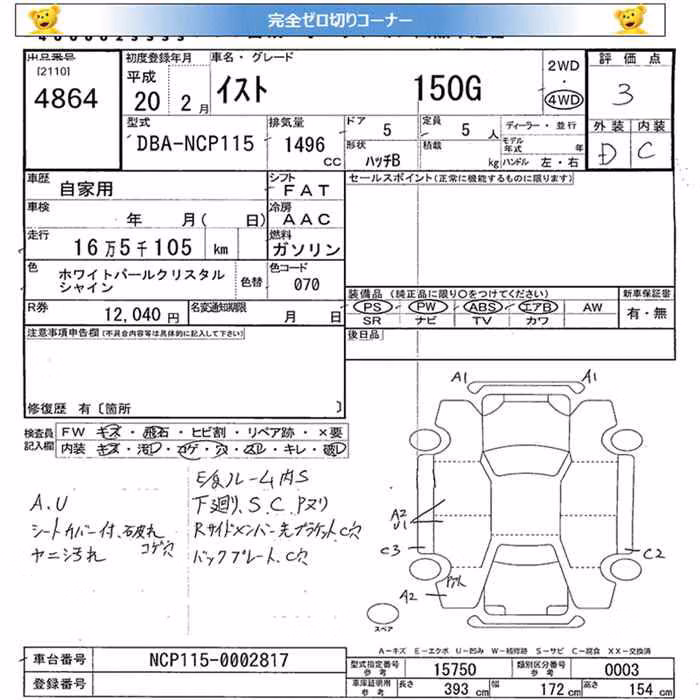 完全ゼロ切りコーナー
出品番号
[2110]
4864
初度登録年月
平成
20 2 月
車名・グレード
イスト 150G
2WD
・
4WD
評価点
3
外装 内装
D C
型式
DBA-NCP115
排気量
1496
CC
ドア 5
形状
ハッチB
定員 5 人
積載 kg
ディーラー・並行
モデル年式 年
ハンドル 左・右
車歴
自家用
シフト
FAT
セールスポイント(正常に機能するものに限ります)
車検
年 月( 日)
冷房
AAC
走行
16万5千105 km
燃料
ガソリン
色
ホワイトパールクリスタル
シャイン
色替
色コード
070
R券
12,040 円
名変通知期限
月 日
装備品 (純正品に限り〇をつけてください)
PS PW ABS エアB AW
SR ナビ TV カワ
新車保証書
有・無
注意事項申告欄(不具合内容等は具体的に記入して下さい)
後日品
修復歴 有〔箇所 〕
検査員
記入欄
FW キズ・飛石・ヒビ割・リペア跡・×要
内装 キズ・汚レ・コゲ・穴・スレ・キレ・破レ
A.U
シートカバー付、破れ
コゲ穴
ヤニ汚れ
下廻り、S、C、Pヌリ
Rサイドメンバー先ブラケットC穴
バックプレート、C穴
A1 A1
A2
U1
C3 C2
A2
スペア
A－キズ E－エクボ U－凹み W－補修跡 S－サビ C－腐食 XX－交換済
車台番号
NCP115-0002817
登録番号
型式指定番号
参考
15750
類別区分番号
参考
0003
車庫証明用
参考
長さ 393 cm
幅 172 cm
高さ 154 cm